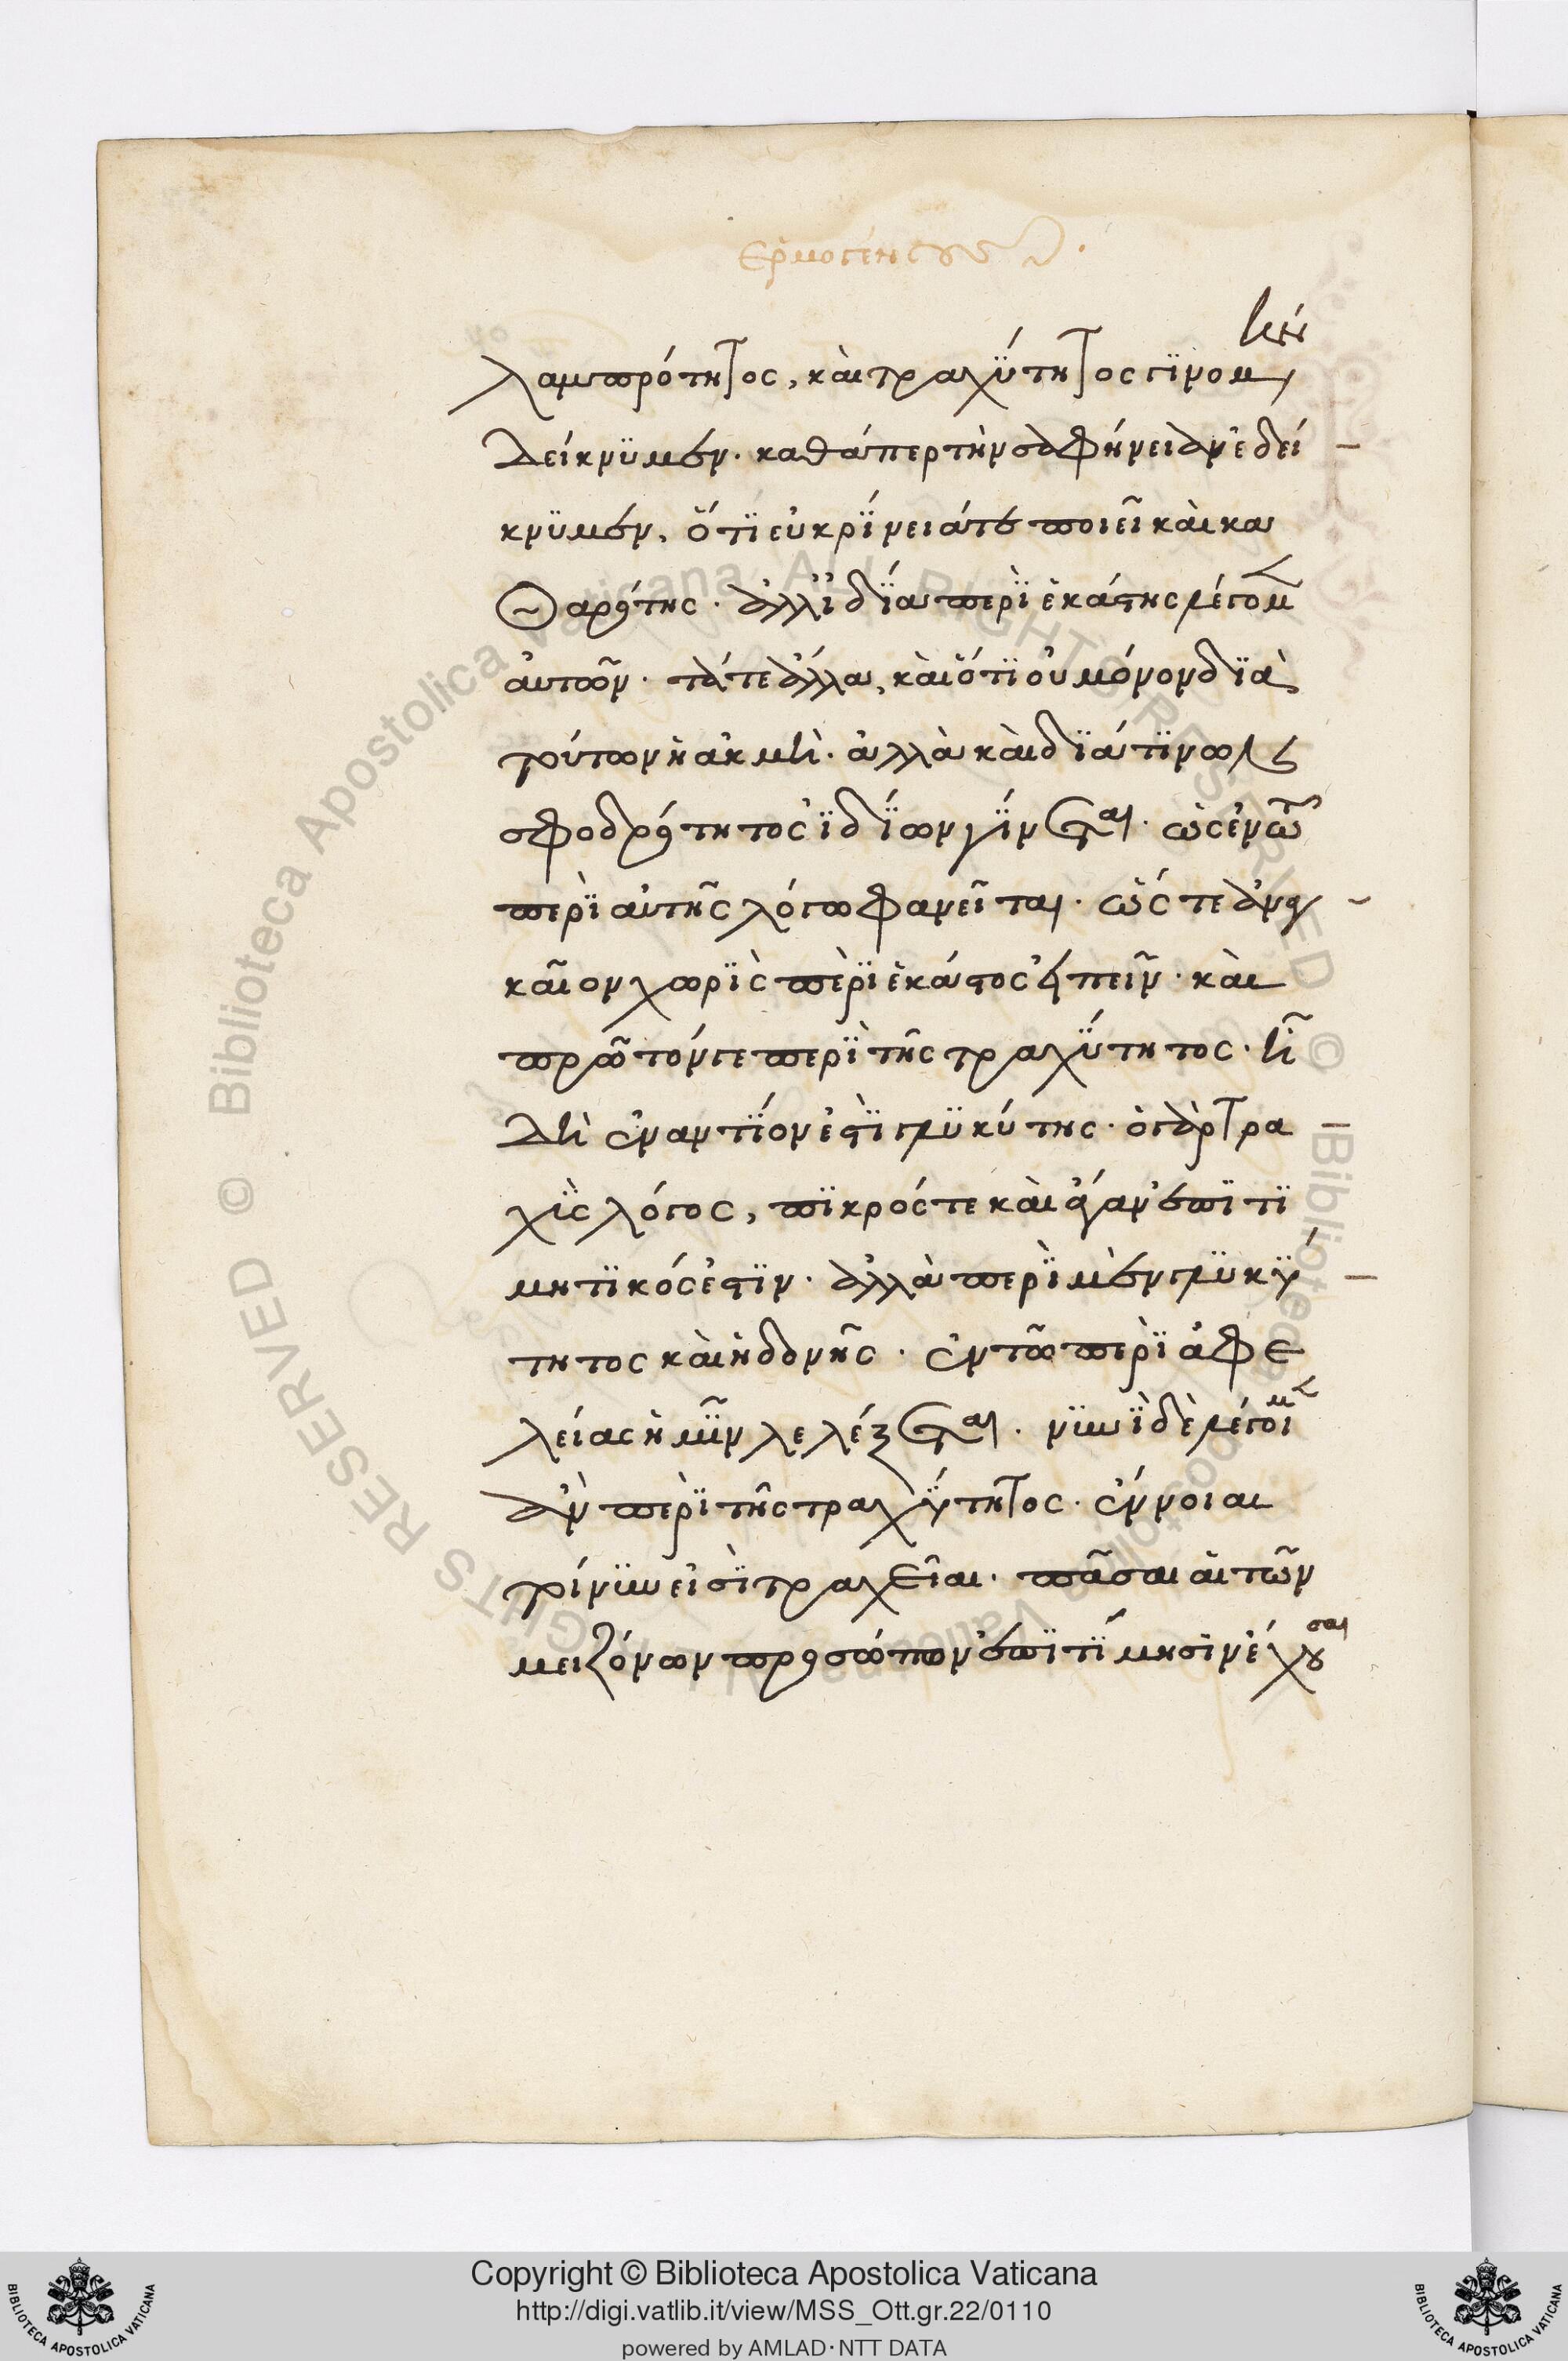 Ἑρμογένους
λαμπρότητος, καὶ τραχύτητος γινομένην
δείκνυμεν. καθάπερ τὴν σαφήνειαν ἐδεί
κνυμεν, ὅτι εὐκρίνειά τε ποιεῖ καὶ κα
θαρότης. ἀλλ' ἰδία περὶ ἑκάστης λέγομεν
αὐτῶν. τά τε ἄλλα, καὶ ὅτι οὐ μόνον διὰ
τούτων ἡ ἀκμὴ. ἀλλὰ καὶ διά τινων
σφοδρότητος ἰδίων γίνεται. ὡς ἐν τῷ
περὶ αὐτῆς λόγω φανεῖται. ὥστε ἀναγ
καῖον χωρὶς περὶ ἑκάστος εἰπεῖν. καὶ
πρῶτόν γε περὶ τῆς τραχύτητος. ἧ
δὴ ἐναντίον ἐστὶ γλυκύτης. ὁ γὰρ τρα
χὺς λόγος, πικρός τε καὶ ἄγαν ἐπιτι
μητικός ἐστιν. ἀλλὰ περὶ μὲν γλυκύ
τητος καὶ ἡδονῆς. ἐν τῶ περὶ ἀφε
λείας ἡμῖν λελέξεται. νυνὶ δὲ λέγοιμεν
ἂν περὶ τῆς τραχύτητος. ἔννοιαι
τοίνυν εἰσὶ τραχεῖαι. πᾶσαι αἱ τῶν
μειζόνων προσώπων ἐπιτίμησιν ἔχουσαι
Copyright © Biblioteca Apostolica Vaticana
http://digi.vatlib.it/view/MSS_Ott.gr.22/0110
powered by AMLAD·NTT DATA
BIBLIOTECA APOSTOLICA VATICANA
BIBLIOTECA APOSTOLICA VATICANA